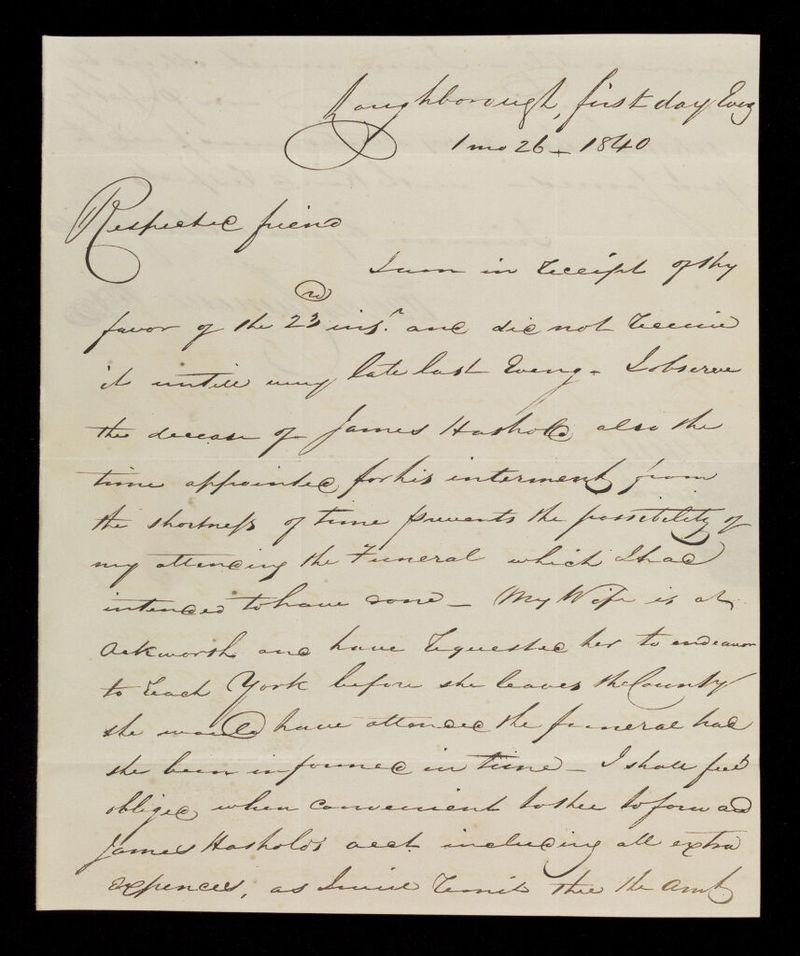 Loughborough, first day Eveg
1 mo 26 - 1840
Respected friend
I am in receipt of thy
favor of the 23rd inst. and did not receive
it untill very late last Eveng - I observe
the decease of James Hashold also the
time appointed for his interment, from
the shortness of time prevents the possibility of
my attending the Funeral which I had
intended to have done - My Wife is at
Ackworth and have requested her to endeavor
to reach York before she leaves the County
she would have attended the funeral had
she been informed in time - I shall feel
obliged when convenient to thee to forward
James Hasholds acct. including all extra
expences, as I will remit thee the amt